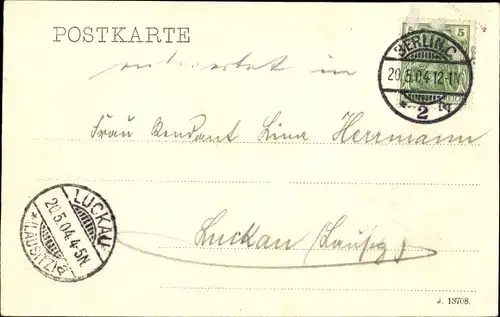 POSTKARTE
5
BERLIN.C.
20.5.04.12-1N.
2
in
Frau Rendant Lina Herrmann
LUCKAU
20.5.04.4-5N
*(LAUSITZ)a
Luckau (Lausitz)
J. 13708.